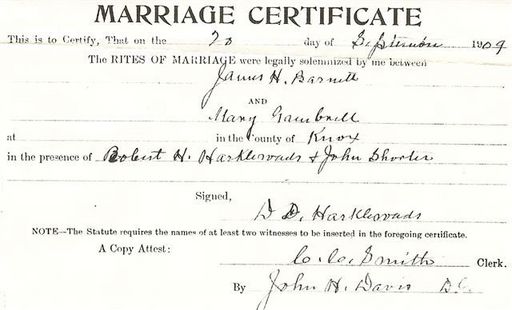 MARRIAGE CERTIFICATE
This is to Certify, That on the 20 day of September 1909
The RITES OF MARRIAGE were legally solemnized by me between
James H. Barnett
AND
Mary Gambrell
at in the County of Knox
in the presence of Robert H. Harkleroads & John Shorter
Signed,
D D. Harkleroads
NOTE—The Statute requires the names of at least two witnesses to be inserted in the foregoing certificate.
A Copy Attest: C. C. Smith Clerk.
By John H. Davis D.C.